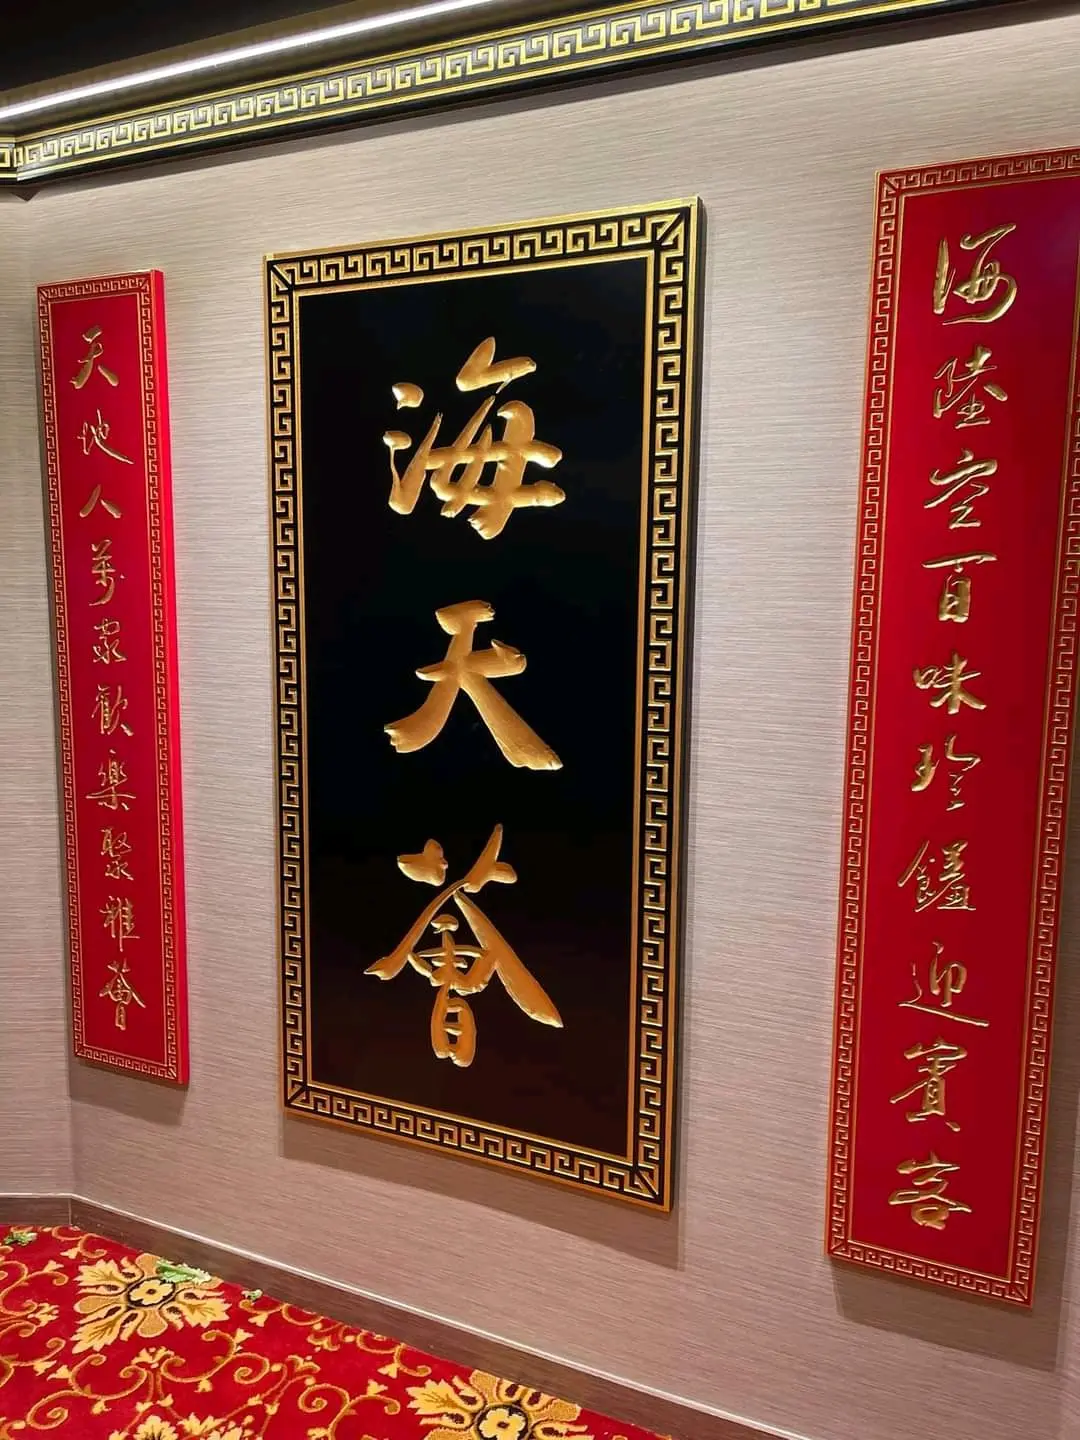 海陸空百味珍饈迎賓客
海天薈
天地人萬眾歡樂聚雅薈